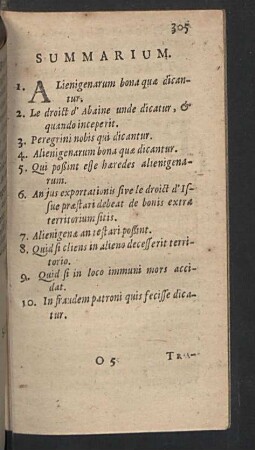 305
SUMMARIUM.
1. ALienigenarum bona quæ dican-
tur.
2. Le droict d'Abaine unde dicatur, &
quando inceperit.
3. Peregrini nobis qui dicantur.
4. Alienigenarum bona quæ dicantur.
5. Qui possint esse hæredes alienigena-
rum.
6. An jus exportationis sive le droict d'Is-
sue præstari debeat de bonis extra
territorium sitis.
7. Alienigenæ an testari possint.
8. Quid si cliens in alieno decesserit terri-
torio.
9. Quid si in loco immuni mors acci-
dat.
10. In fraudem patroni quis fecisse dica-
tur.
O 5